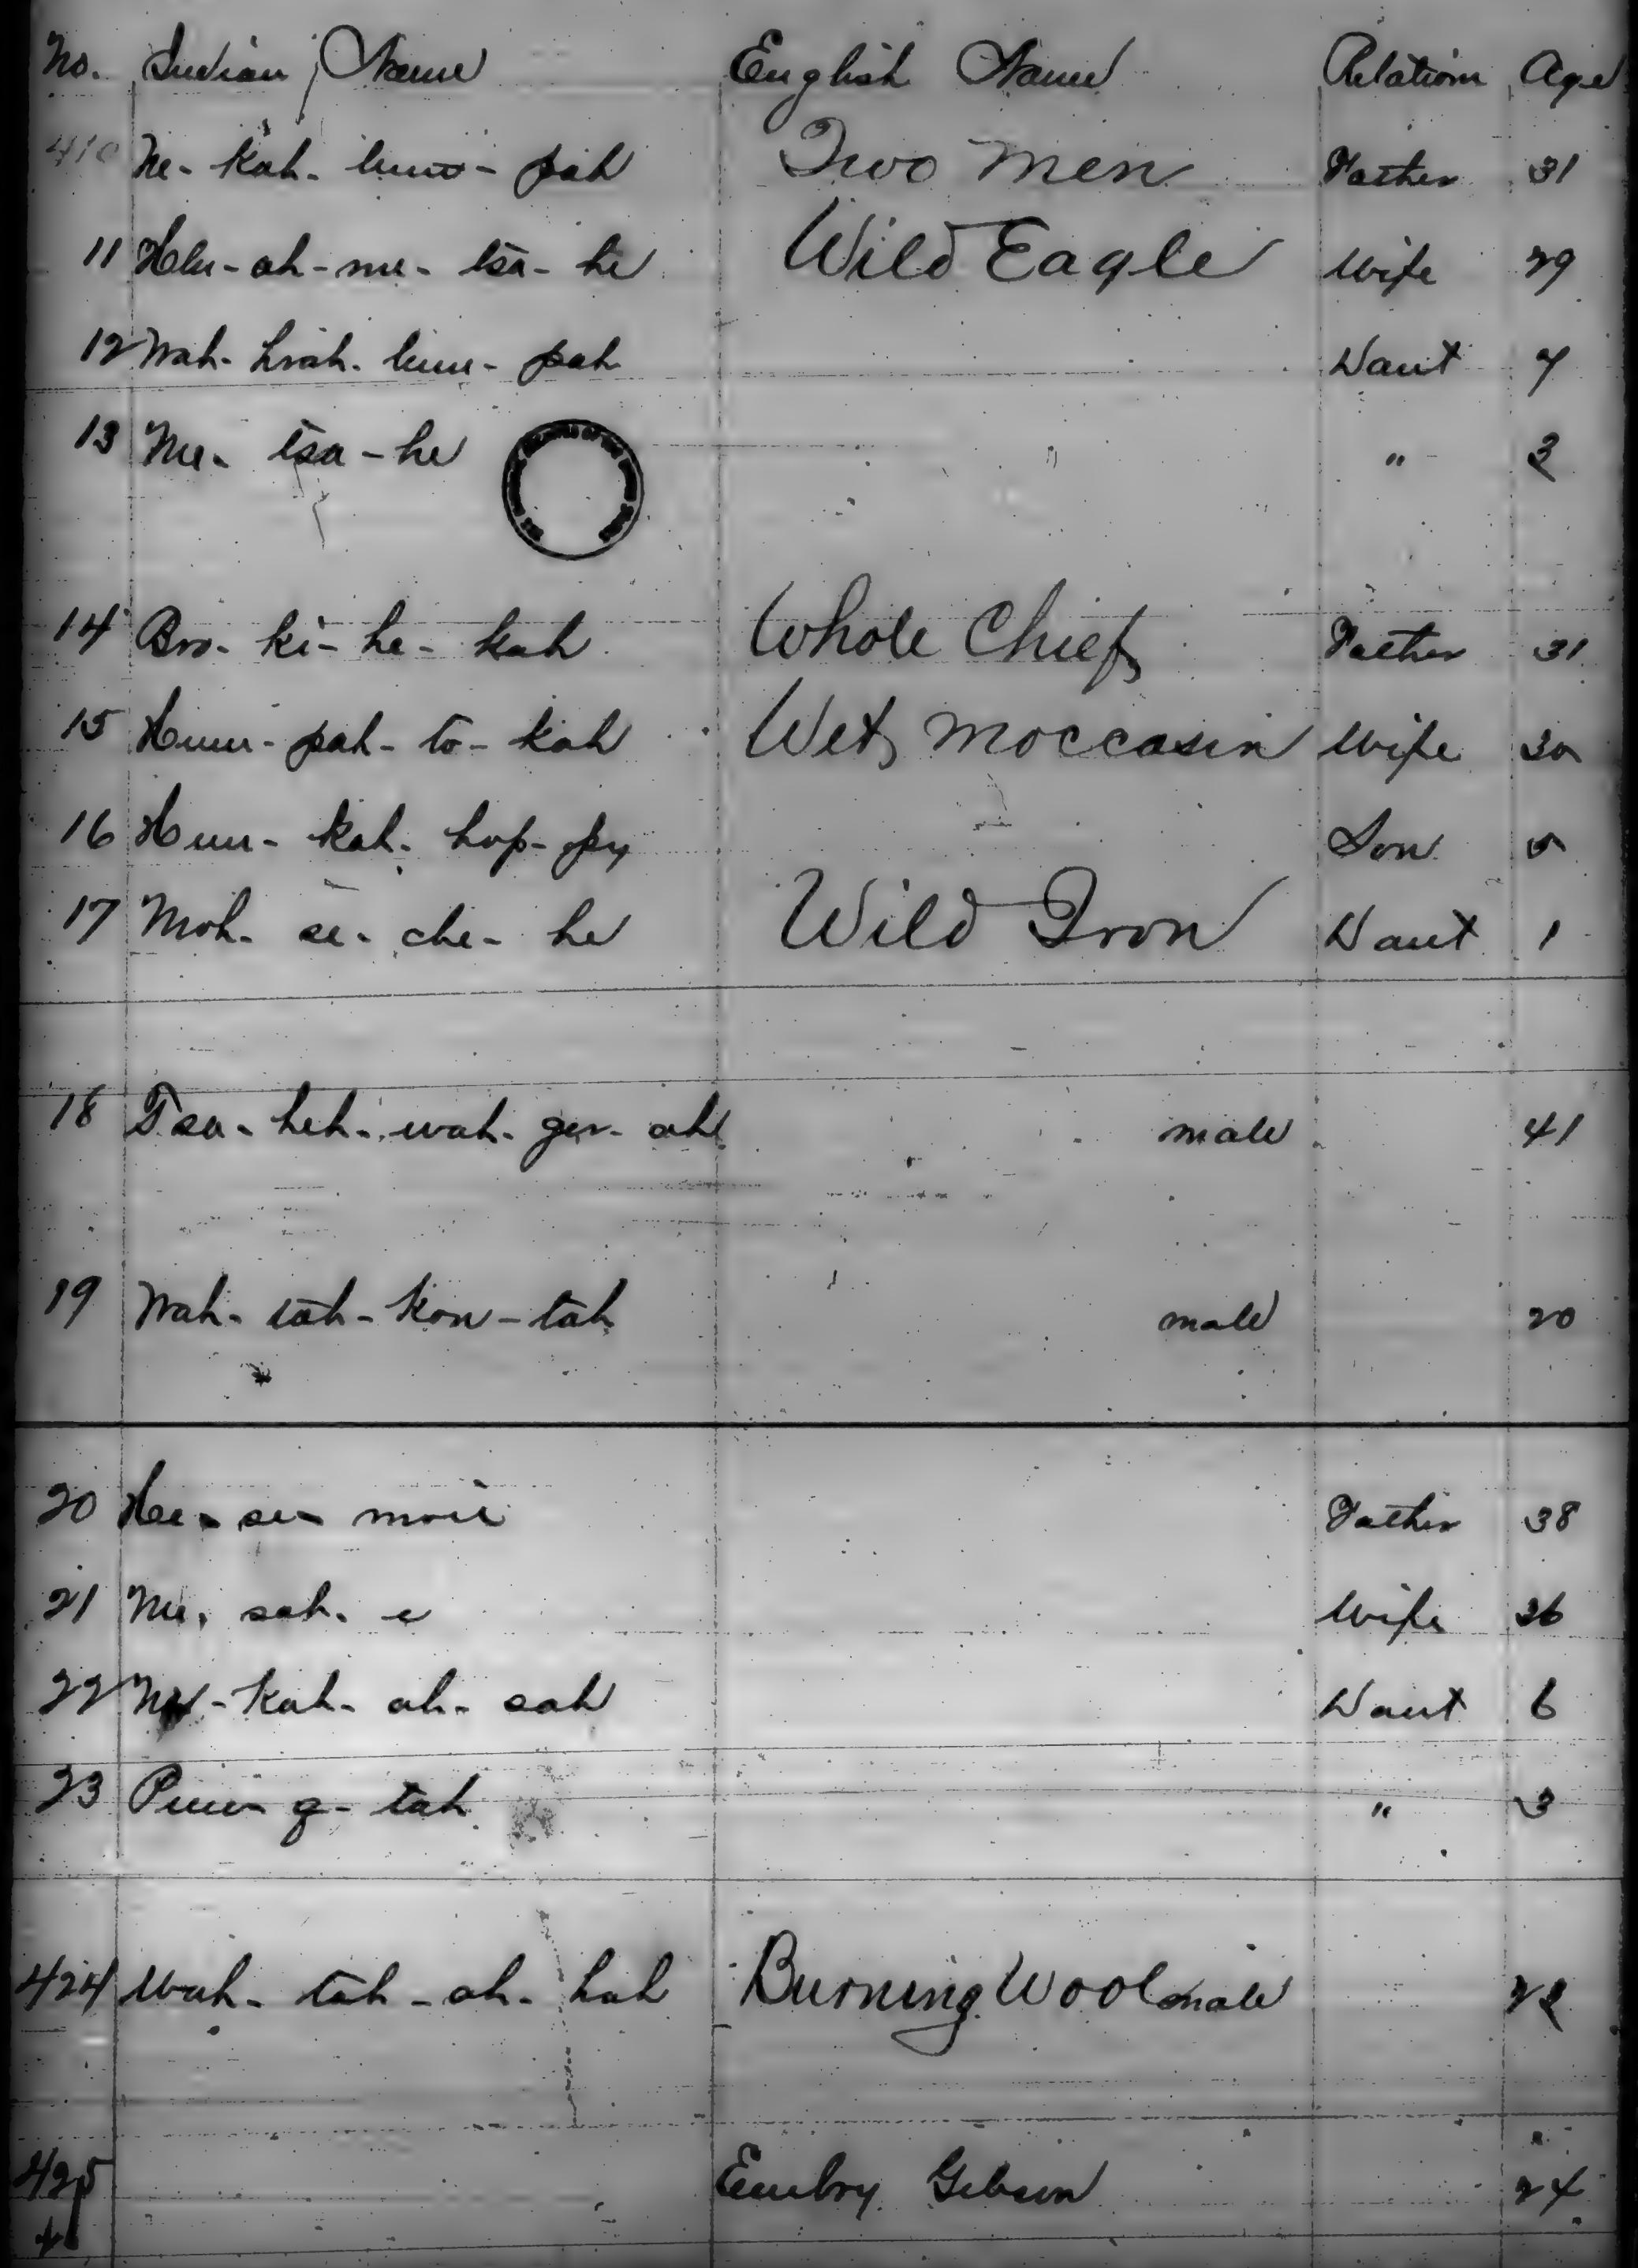 No. Indian Name English Name Relation Age
410 Ne- kah- lum- pah Two Men Father 31
11 Hlu-ah-me- tsa- he Wild Eagle Wife 29
12 Wah- hrah- lum- pah Daut 7
13 Me- tsa-he " 3
14 Bro- ki- he- kah Whole Chief Father 31
15 Hum- pah- to- kah Wet Moccasin Wife 30
16 Hun- kah- hop- py Son 5
17 Moh- se- che- he Wild Iron Daut 1
18 Tsa- heh- wah- ger- ah male 41
19 Wah- tah- Kon- tah male 20
20 Hee- se- moie Father 38
21 Me. sah. e Wife 36
22 -Kah- ah- sah Daut 6
23 g- tah " 3
424 Wah- tah- ah- hah Burning Wool male 22
425 Embry Gibson 24